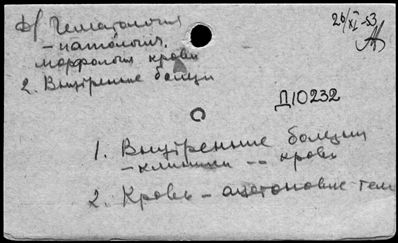 ф/ Гематология
26/XI-53
- патология,
морфология крови
2. Внутренние болезни
Д10232
1. Внутренние болезни
- клиники -- кровь
2. Кровь - ацетоновые тела